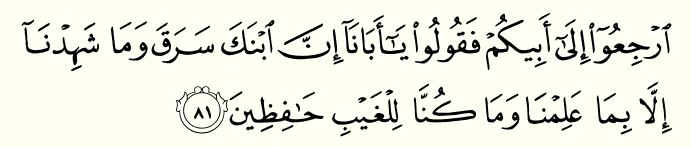 ٱرۡجِعُوٓاْ إِلَىٰٓ أَبِيكُمۡ فَقُولُواْ يَٰٓأَبَانَآ إِنَّ ٱبۡنَكَ سَرَقَ وَمَا شَهِدۡنَآ
إِلَّا بِمَا عَلِمۡنَا وَمَا كُنَّا لِلۡغَيۡبِ حَٰفِظِينَ ٨١